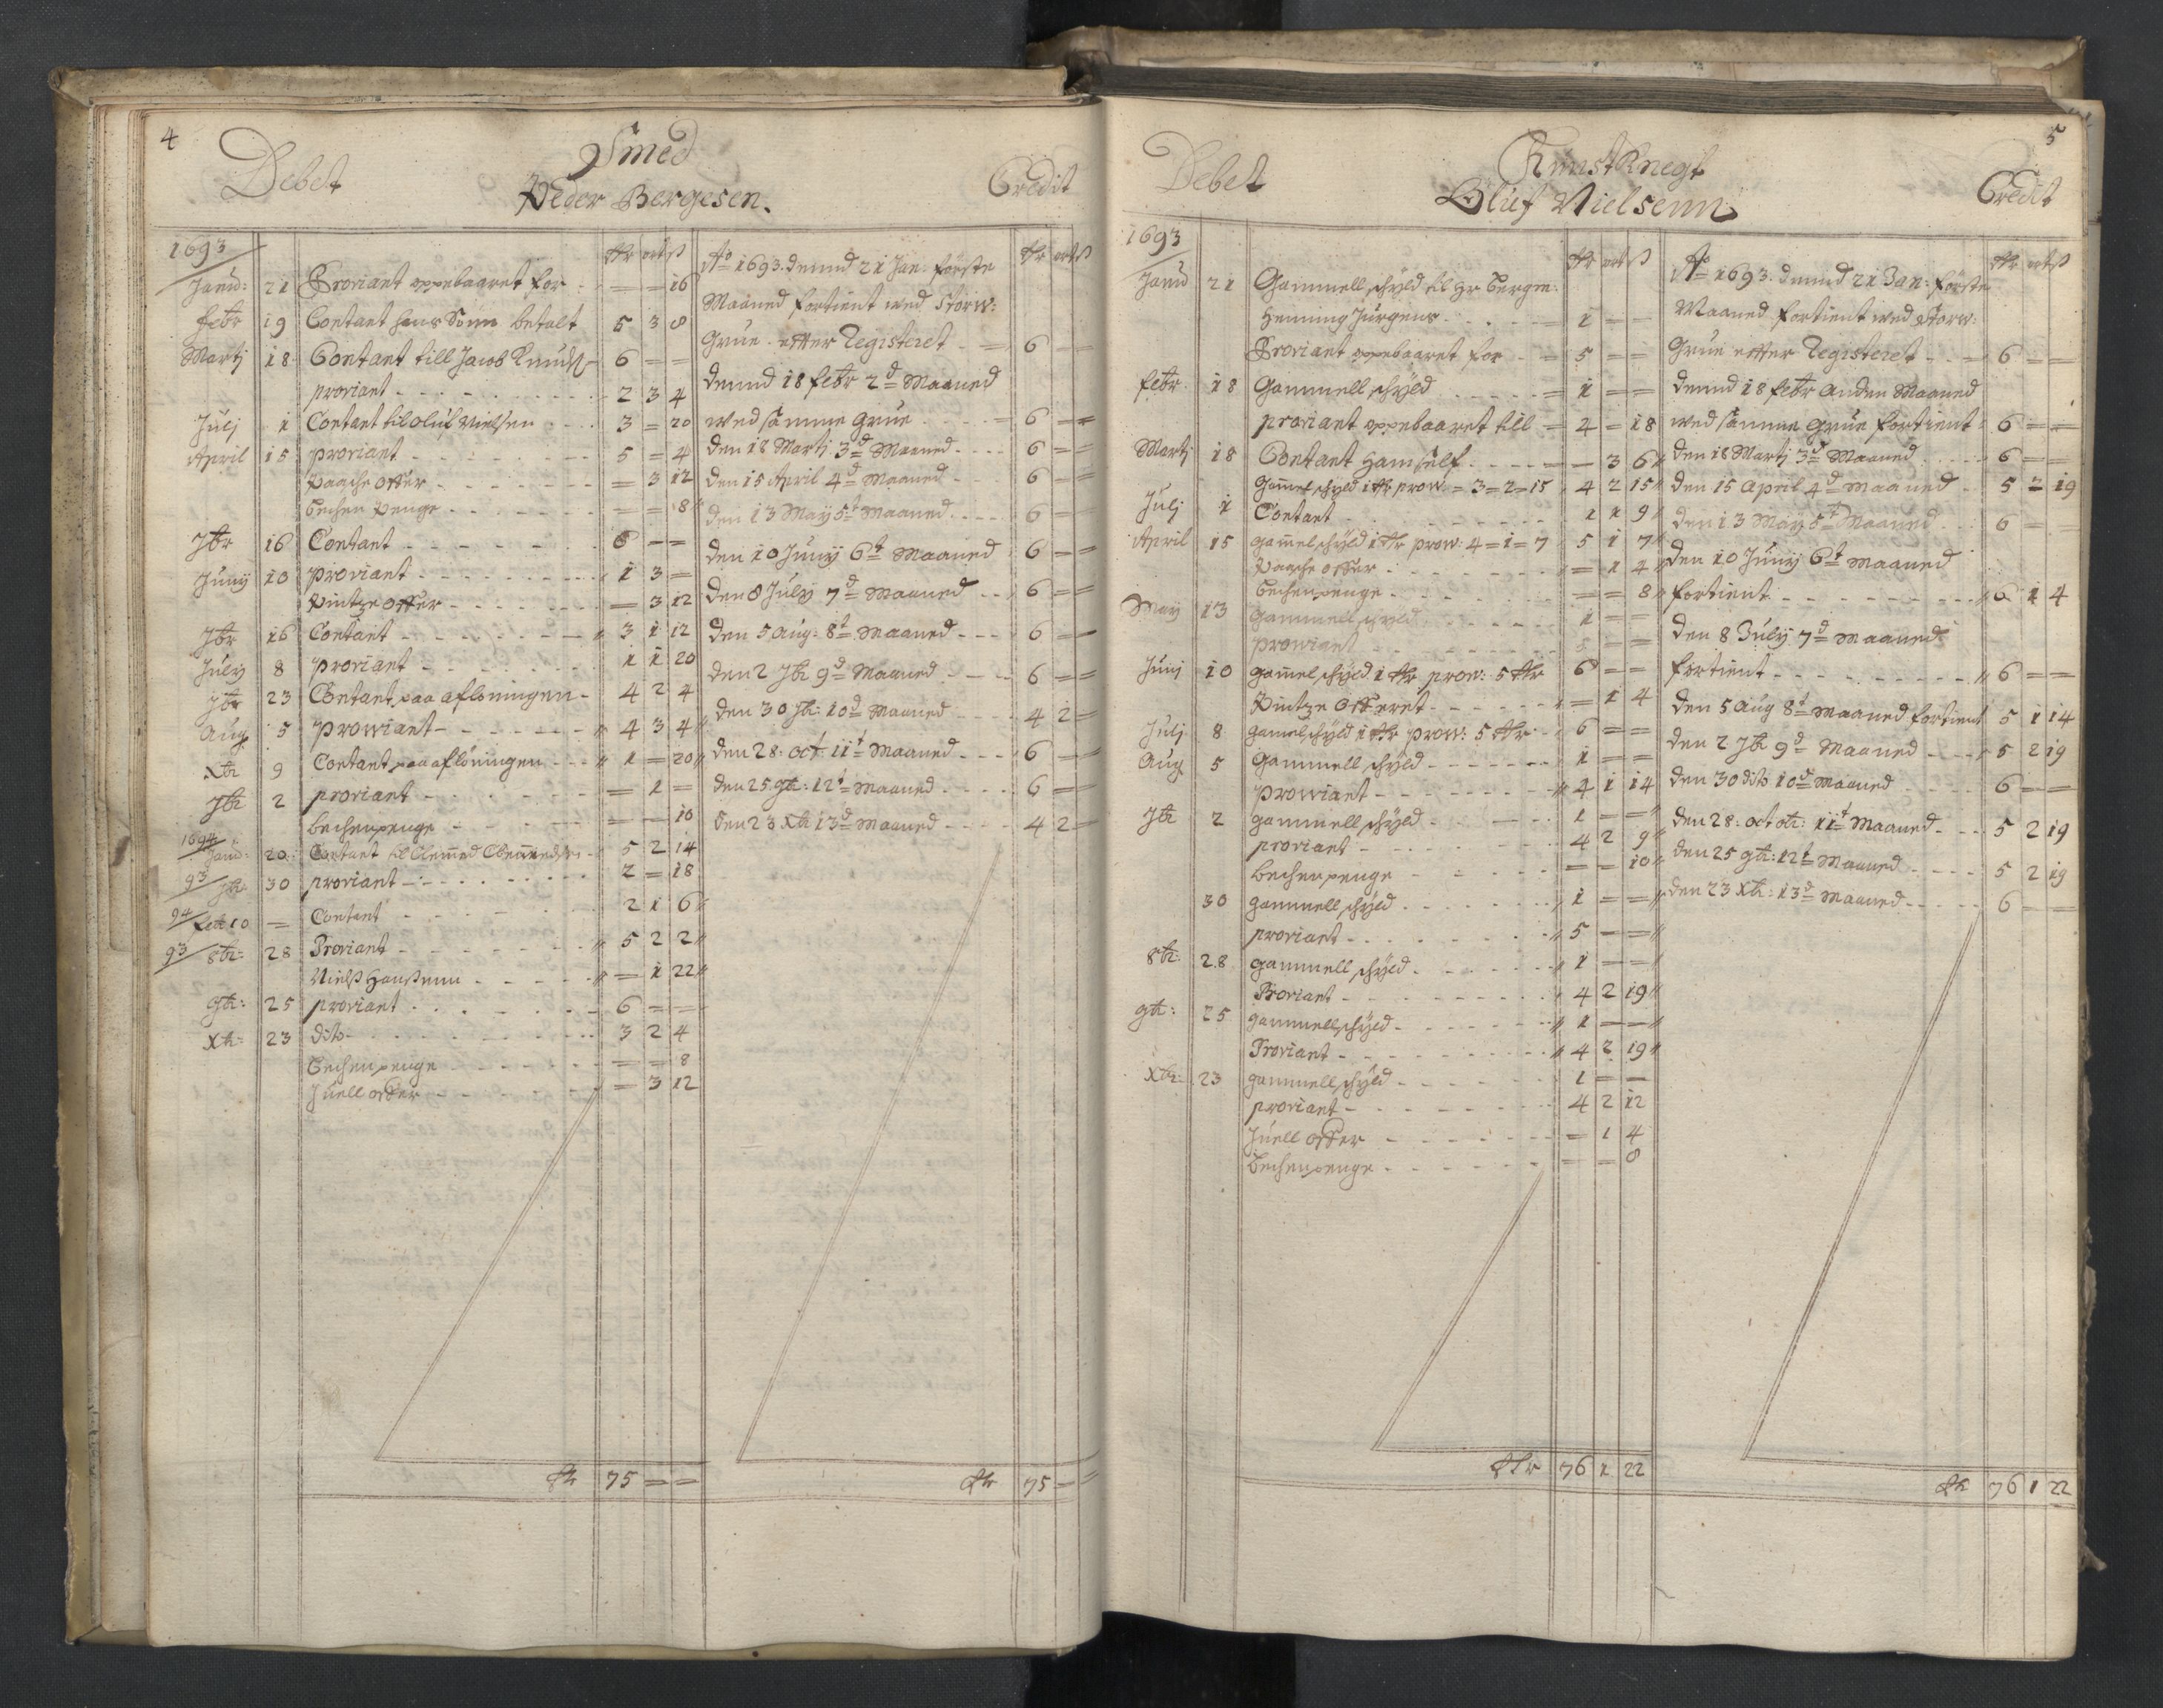 4
Debet
Smed
Peder Bergesen.
Credit
1693
Rdr ort ß
Janu: 21 Proviant oppebaaret for - = = 16
febr 19 Contant hans Sønn betalt 5 3 8
Martj 18 Contant till Jacob Knuds- 6 = =
proviant - - - 2 3 4
Julj 1 Contant til Oluf Nielsen - 3 = 20
April 15 proviant - - - 5 = 4
Paasche offer - - - = 3 12
Bechen Penge - - - = = 8
7br 16 Contant - - - 6 = =
Junij 10 proviant - - - 1 3 =
Pintze offer - - - = 3 12
7br 16 Contant - - - 3 1 12
July 8 proviant - - - 1 1 20
7br 23 Contant paa afløningen - 4 2 4
Aug 5 prowiant - - - 4 3 4
Xbr 9 Contant paa afløningen - - 1 = 20
7br 2 proviant - - - = 1 =
bechenpenge - - - = = 10
1694 Janu: 20 Contant til Clemmed - 5 2 14
93 7br: 30 proviant - - - 2 = 18
94 feb: 10 = Contant - - - 2 1 6
93 8br: 28 Proviant - - - 5 2 2
Nielß Hanßenn - - - = 1 22
9br: 25 proviant - - - 6 = =
Xbr: 23 dito - - - 3 2 4
Bechenpenge - - - = = 8
Juell offer - - - = 3 12
Rdr 75 = =
Rdr ort ß
Ao 1693. dennd 21 Jan: første
Maaned fortient wed Storw:
Grue efter Registeret - = 6 = =
dennd 18 febr 2d Maaned
wed samme Grue - - - 6 = =
den 18 Martj 3d Maaned - - - 6 = =
den 15 April 4d Maaned - - - 6 = =
den 13 Maij 5t Maaned - - - 6 = =
den 10 Junij 6t Maaned 6 = =
den 8 July 7d Maaned - - 6 = =
den 5 Aug: 8t Maaned - - - 6 = =
den 2 7br 9d Maaned - - - 6 = =
den 30 7br: 10d Maaned - - - 4 2 =
den 28: oct 11t Maaned - - - 6 = =
den 25 9br: 12t Maaned - - - 6 = =
den 23 Xbr 13d Maaned - - - 4 2 =
Rdr 75 = =
5
Debet
Kunst Knegt
Oluf Nielsenn
Credit
1693
Rdr ort ß
Janu 21 Gammell schyld til Hr Bergm:
Henning Jürgens - - - 1 = =
Proviant oppebaaret for - = 5 = =
febr 18 Gammell schyld - - - 1 = =
proviant oppebaaret till = 4 = 18
Martj 18 Contant Ham self - - - = 3 6
Gammel schyld 1 Rdr prow: = 3 = 2 = 15 4 2 15
Julj 1 Contant - - - 1 1 9
April 15 gammel schyld 1 Rdr prow: 4 = 1 = 7 5 1 7
Paasche offer - - - = 1 4
Bechenpenge - - - = = 8
May 13 Gammell schyld - - - 1 = =
prowiant - - - 5 = =
Junj 10 gammel schyld 1 Rdr prow: 5 Rdr 6 = =
Pintze offeret - - - = 1 4
Julj 8 gamel schyld 1 Rdr prow: 5 Rdr - 6 = =
Aug 5 Gammell schyld - - - 1 = =
prowiant - - - 4 1 14
7br 2 gammell schyld - - - 1 = =
proviant - - - 4 2 9
bechenpenge - - - = = 10
30 gammell schyld - - - 1 = =
proviant - - - 5 = =
8br: 28 gammell schyld - - - 1 = =
Proviant - - - 4 2 19
9br: 25 gammell schyld - - - 1 = =
Proviant - - - 4 2 19
Xbr: 23 gammell schyld - - - 1 = =
proviant - - - 4 2 12
Juell offer - - - = 1 4
bechenpenge - - - = = 8
Rdr 76 1 22
Rdr ort ß
Ao 1693. dennd 21 Jan: første
Maaned fortient wed Storw:
Grue efter Registeret - - 6 = =
dennd 18 febr anden Maaned
wed samme Grue fortient 6 = =
den 18 Martj 3d Maaned - - - 6 = =
den 15 April 4d Maaned - 5 2 19
den 13 Maij 5t Maaned - 6 = =
den 10 Junij 6t Maaned
fortient - - - 6 1 4
den 8 July 7d Maaned
fortient - - - 6 = =
den 5 Aug 8t Maaned fortient 5 1 14
den 2 7br 9d Maaned - - - 5 2 19
den 30 dito 10d Maaned - - - 6 = =
den 28: octobr: 11t Maaned - - 5 2 19
den 25 9br: 12t Maaned - - - 5 2 19
den 23 Xbr: 13d Maaned - - - 6 = =
Rdr 76 1 22